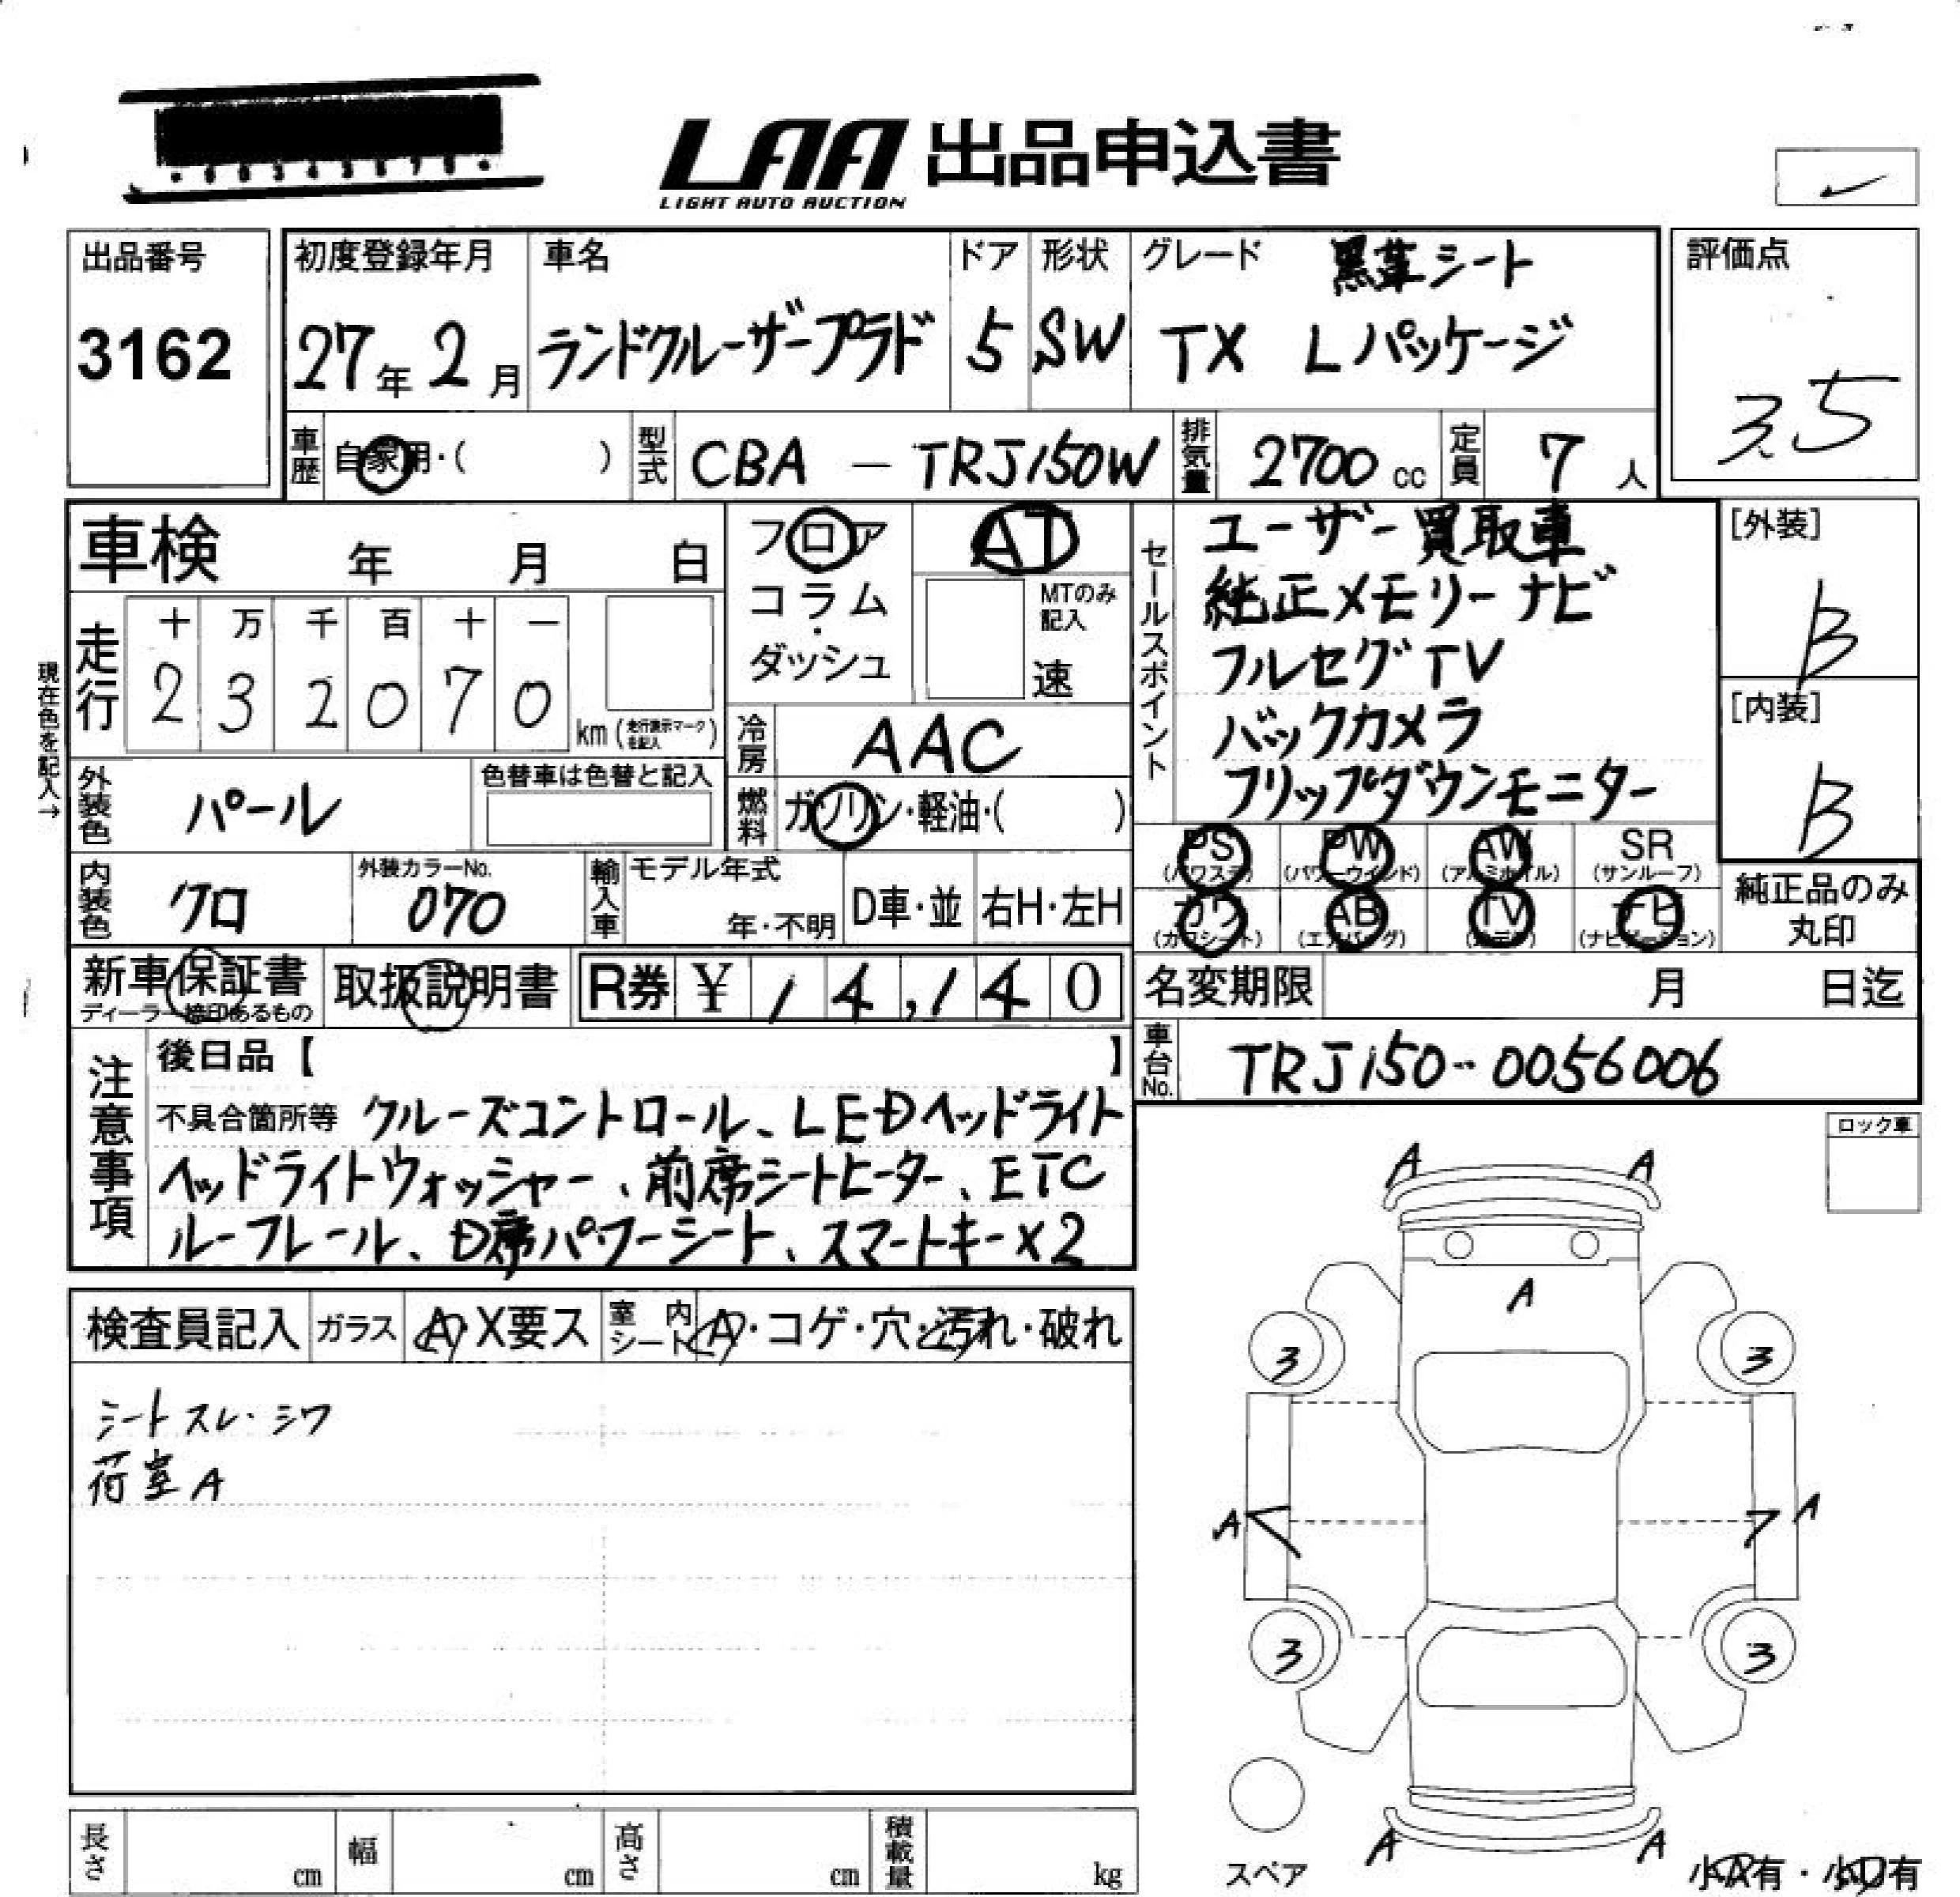 LAA 出品申込書
LIGHT AUTO AUCTION
出品番号
3162
初度登録年月
27年2月
車名
ランドクルーザープラド
ドア
5
形状
SW
グレード 黒革シート
TX Lパッケージ
評価点
3.5
車歴 自家用・( )
型式 CBA － TRJ150W
排気量 2700 cc
定員 7 人
車検 年 月 日
フロア
コラム
・
ダッシュ
AT
MTのみ記入
速
走行
十 万 千 百 十 一
2 3 2 0 7 0 km (走行表示マークを記入)
現在色を記入→
冷房 AAC
外装色 パール
色替車は色替と記入
燃料 ガソリン・軽油・( )
内装色 クロ
外装カラーNo.
070
輸入車 モデル年式
年・不明
D車・並
右H・左H
セールスポイント
ユーザー買取車
純正メモリーナビ
フルセグTV
バックカメラ
フリップダウンモニター
[外装]
B
[内装]
B
PS (パワステ)
PW (パワーウインド)
AW (アルミホイル)
SR (サンルーフ)
カワ (カワシート)
AB (エアバッグ)
TV
ナビ (ナビゲーション)
純正品のみ
丸印
新車保証書
ディーラー捺印あるもの
取扱説明書
R券 ¥ 14,140
名変期限 月 日迄
車台No. TRJ150-0056006
注意事項
後日品【 】
不具合箇所等 クルーズコントロール、LEDヘッドライト
ヘッドライトウォッシャー、前席シートヒーター、ETC
ルーフレール、D席パワーシート、スマートキー×2
検査員記入
ガラス A・X要ス
室内シート A・コゲ・穴・汚れ・破れ
シートスレ・シワ
荷室A
ロック車
A A
A
3 3
A A
3 3
A A
スペア
小A有・小U有
長さ cm
幅 cm
高さ cm
積載量 kg